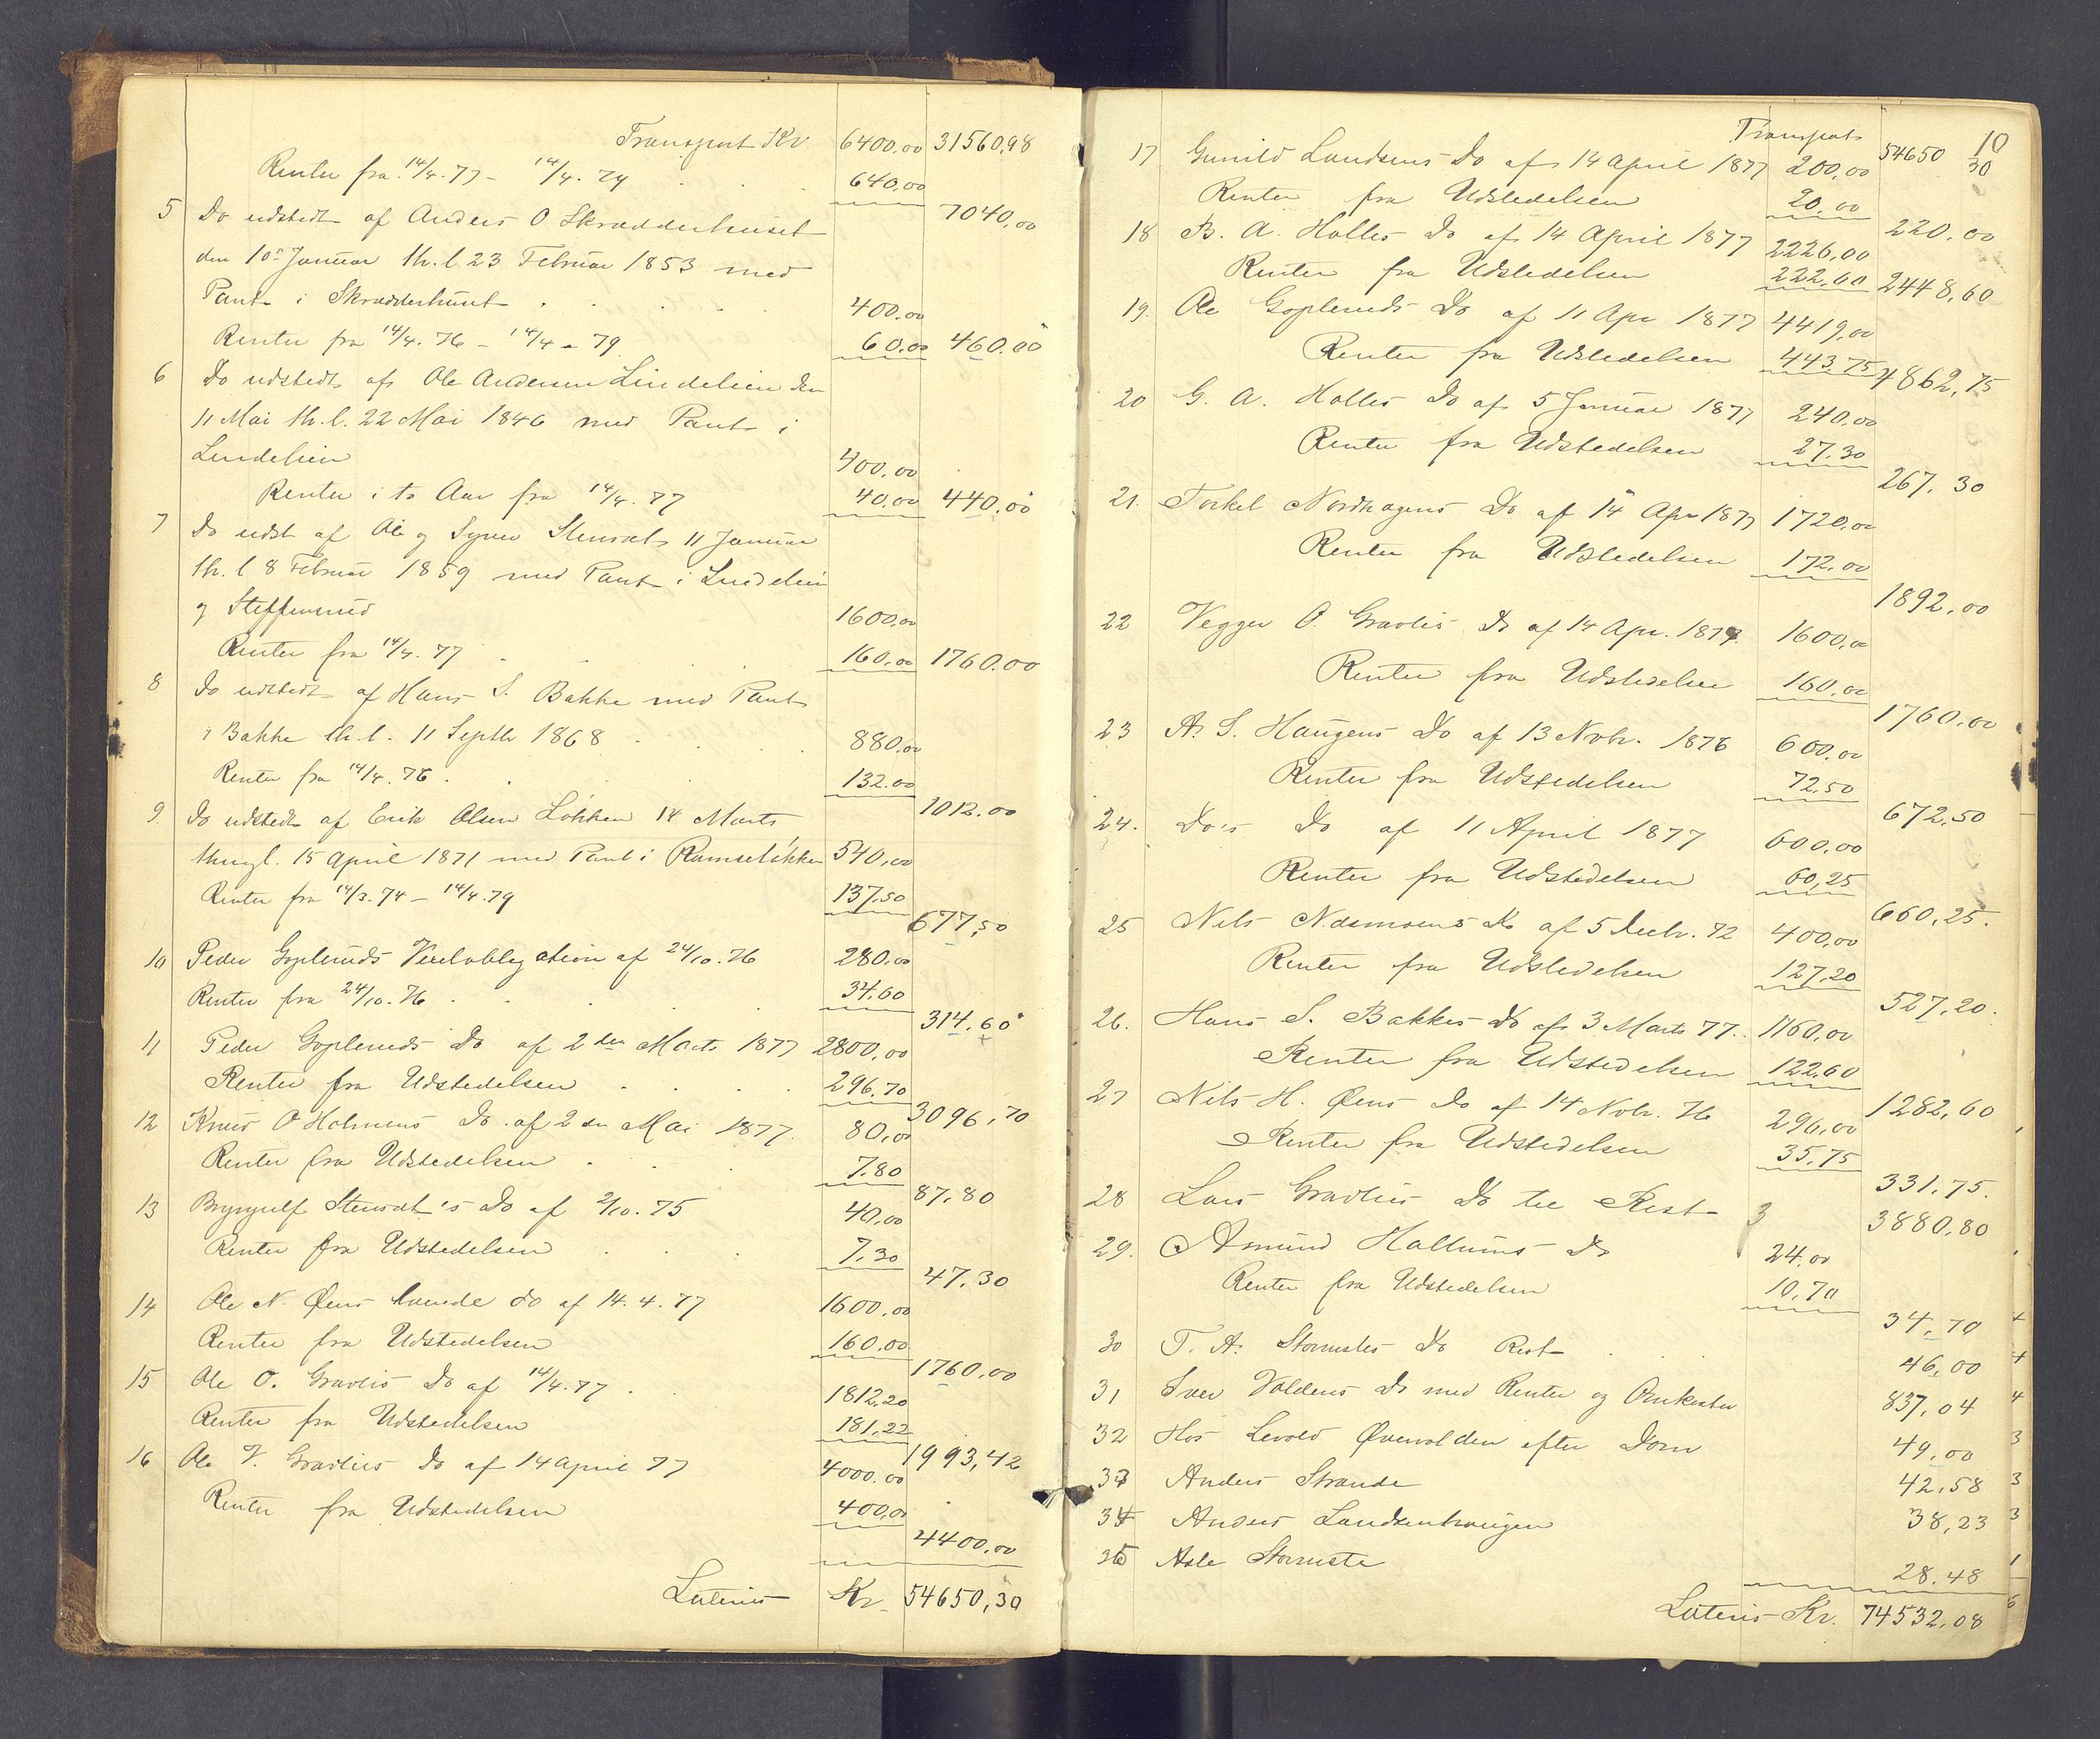 Transport Kr. 6400,00 31560,98
Renter fra 14/4. 77 - 14/4. 79 640,00
7040,00
5 Do udstedt af Anders O Skrædderhuset
den 10de Januar th.l 23 Februar 1853 med
Pant i Skrædderhuset 400,00
Renter fra 14/4. 76 - 14/4 - 79 60,00 460.00
6 Do udstedt af Ole Andersen Lindelien den
11 Mai th.l. 22 Mai 1846 med Pant i
Lindelien 400,00
Renter i to Aar fra 14/4. 77 40,00 440,00
7 Do udst af Ole og Syver Stensæt 11 Januar
th.l 8 Februar 1859 med Pant i Lindelien
og Steffensrud 1600,00
Renter fra 14/4. 77 160,00 1760.00
8 Do udstedt af Hans S. Bakke med Pant
i Bakke th.l. 11 Septbr 1868 880,00
Renter fra 14/4. 76 132.00
1012.00
9 Do udstedt af Erik Olsen Løkken 14 Marts
thingl. 15 April 1871 med Pant i Ramseløkken 540,00
Renter fra 14/3. 74 - 14/4. 79 137,50
677,50
10 Peder Gopleruds Vexelobligation af 24/10. 76 280,00
Renter fra 24/10. 76 34,60
314,60
11 Peder Gopleruds Do af 2den Marts 1877 2800,00
Renter fra Udstedelsen 296,70
3096,70
12 Knud O Holmens Do. af 2den Mai 1877. 80,00
Renter fra Udstedelsen 7.80
87,80
13 Bryngulf Stensæt's Do af 2/10. 75 40,00
Renter fra Udstedelsen 7,30
47,30
14 Ole N. Øens Do af 14. 4. 77 1600,00
Renter fra Udstedelsen 160.00
1760,00
15 Ole O. Gravlis Do af 14/4. 77 1812,20
Renter fra Udstedelsen 181,22
1993,42
16 Ole V. Gravlies Do af 14 April 77 4000.00
Renter fra Udstedelsen 400,00
4400.00
Lateris Kr. 54650,30
10
Transport 54650 30
17 Gunild Landsens Do af 14 April 1877 200,00
Renter fra Udstedelsen 20,00
220,00
18 B. A. Holles Do af 14 April 1877 2226,00
Renter fra Udstedelsen 222,60 2448,60
19. Ole Gopleruds Do af 11 Apr 1877 4419,00
Renter fra Udstedelsen 443,75 4862,75
20 G. A. Holles Do af 5 Januar 1877 240,00
Renter fra Udstedelsen 27.30
267.30
21. Torkel Nordhagens Do af 14 Apr 1877 1720,00
Renter fra Udstedelsen 172,00
1892,00
22 Vegger O. Gravlis Do af 14 Apr. 1877 1600,00
Renter fra Udstedelsen 160,00
1760.00
23 A. S. Haugens Do af 13 Novbr. 1876 600,00
Renter fra Udstedelsen 72,50
672,50
24. Do's Do af 11 April 1877 600,00
Renter fra Udstedelsen 60,25
660,25.
25 Nils Næsmoens Do af 5 Decbr. 72 400,00
Renter fra Udstedelsen 127,20
527,20.
26. Hans S. Bakkes Do af 3 Marts 77. 1160,00
Renter fra Udstedelsen 122,60
1282,60
27 Nils H. Øens Do af 14 Novbr. 76 296,00
Renter fra Udstedelsen 35,75
331,75.
28 Lars Gravlies Do til Rest 3880,80
29. Amund Hallums Do 24.00
Renter fra Udstedelsen 10,70
34,70
30 T. A. Storrustes Do Rest 46,00
31 Iver Voldens Do med Renter og Omkoster 837,04
32 Hos Levold Øvervolden efter Dom 49,00
33 Anders Strande 42,58
34 Anders Landsenhaugen 38,23
35 Asle Storruste 28.48
Lateris Kr. 74532,08